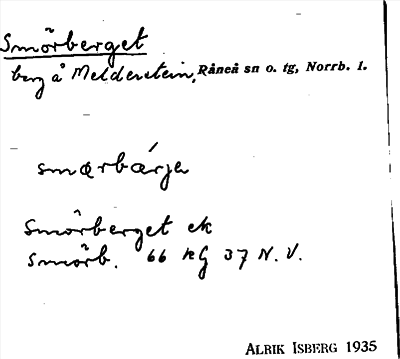 Smörberget
berg å Melderstein, Råneå sn o. tg, Norrb. l.
smærbærja
Smörberget ek
Smörb. 66 kg 37 N.V.
ALRIK ISBERG 1935